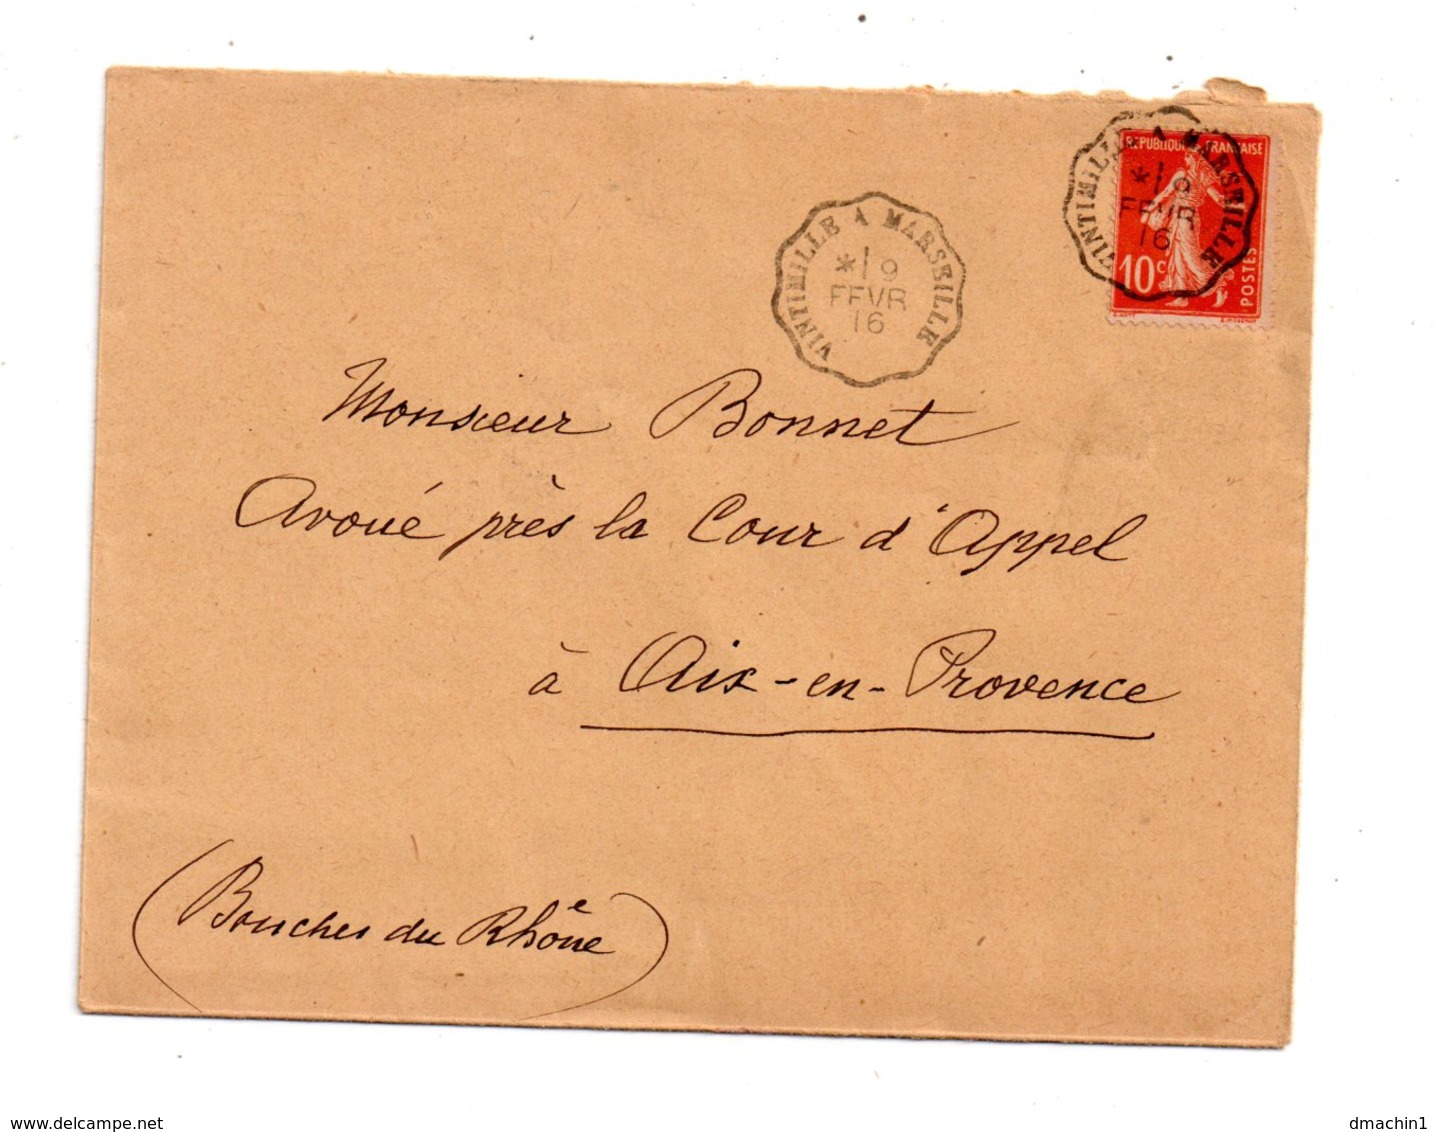 REPUBLIQUE FRANÇAISE
10c
POSTES
VINTIMILLE A MARSEILLE
*19
FEVR
16
VINTIMILLE A MARSEILLE
*19
FEVR
16
Monsieur Bonnet
Avoué près la Cour d'Appel
à Aix-en-Provence
(Bouches du Rhône)
www.delcampe.net
dmachin1